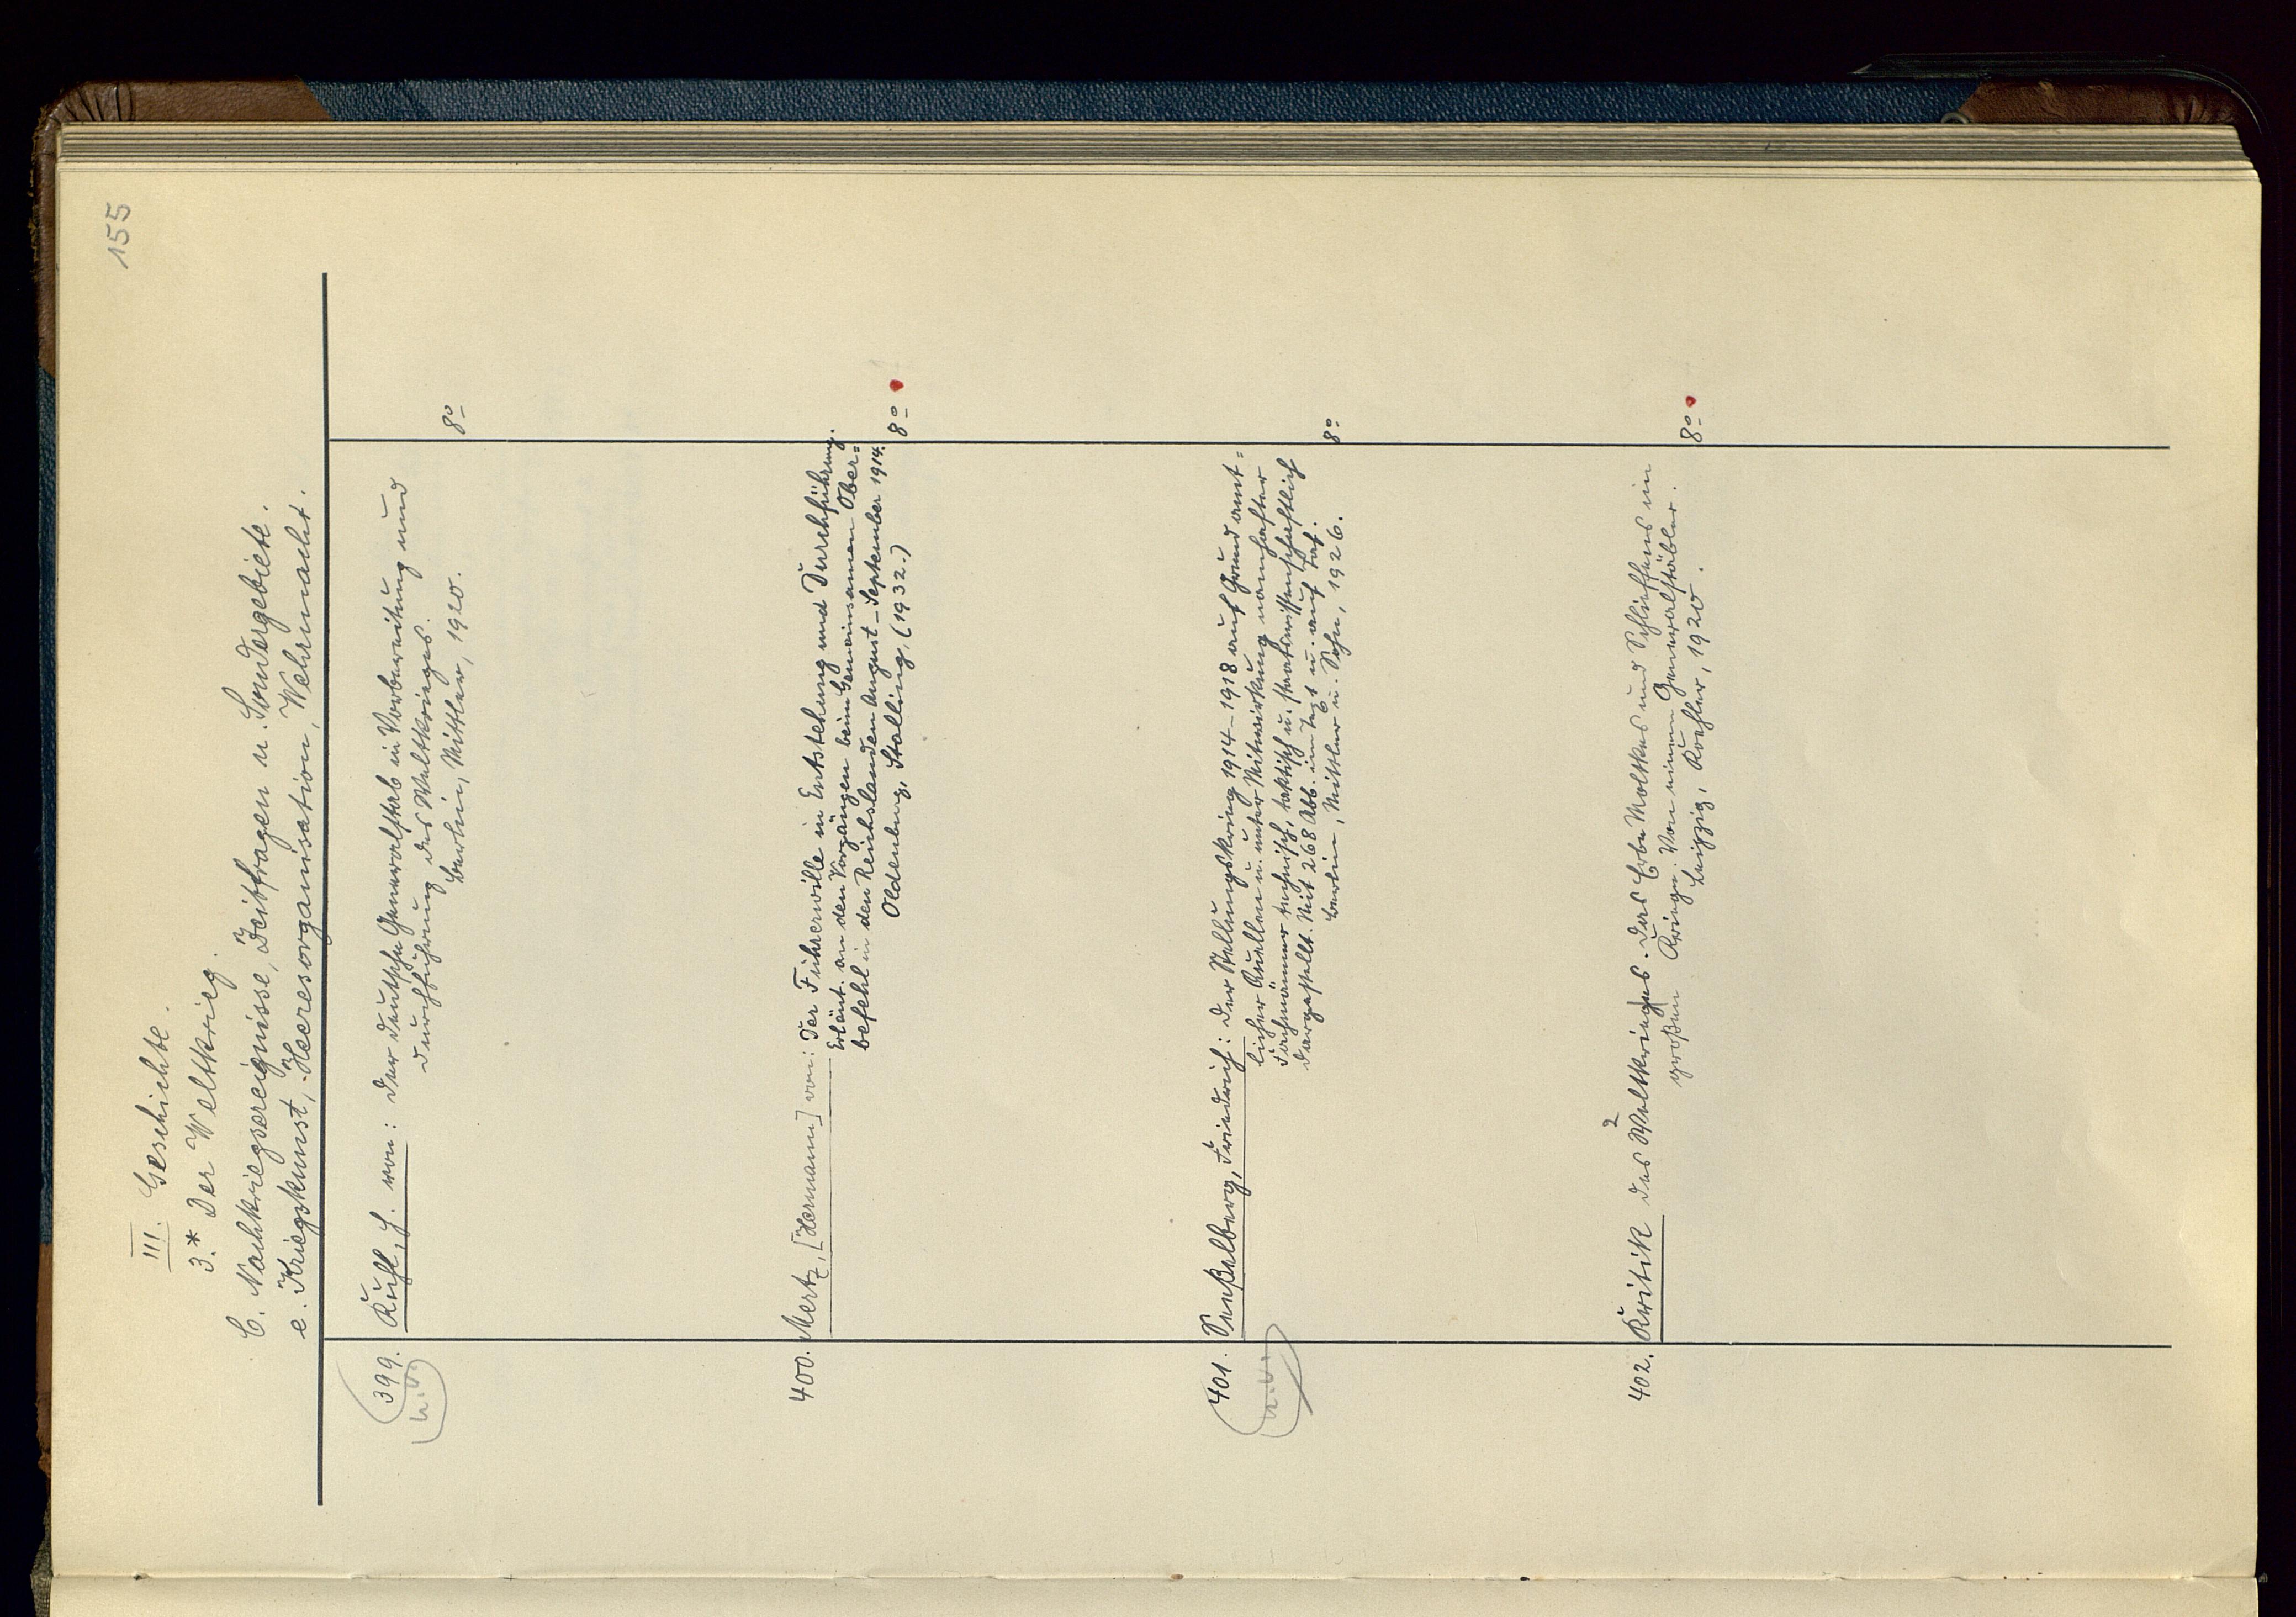 155
III. Geschichte.
3.* Der Weltkrieg.
C. Nachkriegsereignisse, Zeitfragen u. Sondergebiete.
e. Kriegskunst, Heeresorganisation, Wehrmacht.
399. Kuhl, H. von: Der deutsche Generalstab in Vorbereitung und
Durchführung des Weltkrieges.
Berlin, Mittler, 1920. 8°
400. Mertz, [Hermann] von: Der Führerwille in Entstehung und Durchführung.
Erläut. an den Vorgängen beim Gemeinsamen Ober=
befehl in den Reichslanden August–September 1914.
Oldenburg, Stalling, (1932.) 8°
401. Seeßelberg, Friedrich: Der Stellungskrieg 1914–1918 auf Grund amt=
licher Quellen u. unter Mitwirkung namhafter
Fachmänner technisch, taktisch u. staatswissenschaftlich
dargestellt. Mit 268 Abb. im Text u. auf Taf.
Berlin, Mittler u. Sohn, 1926. 8°
402. Kritik des Weltkrieges. Das Erbe Moltkes und Schlieffens im
großen Kriege. Von einem Generalstäbler.
Leipzig, Koehler, 1920. 8°